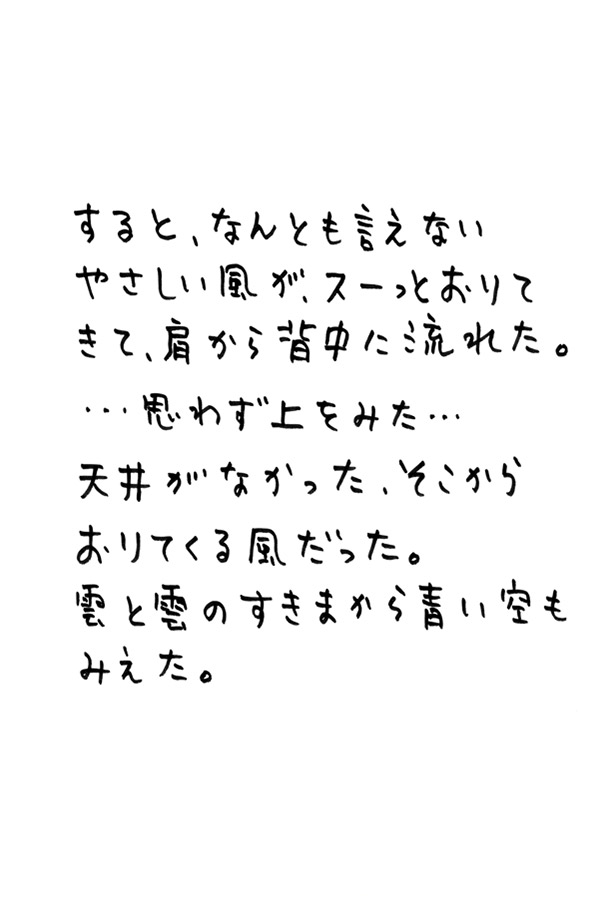 すると、なんとも言えない
やさしい風が、スーっとおりて
きて、肩から背中に流れた。
…思わず上をみた…
天井がなかった、そこから
おりてくる風だった。
雲と雲のすきまから青い空も
みえた。